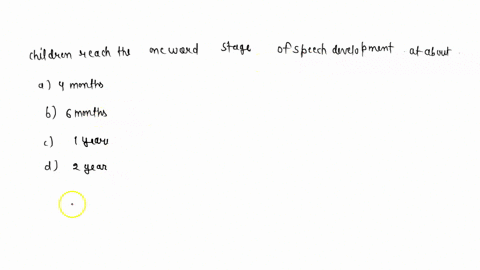 children reach the one word stage of speech development at about
a) 4 months
b) 6 months
c) 1 year
d) 2 year